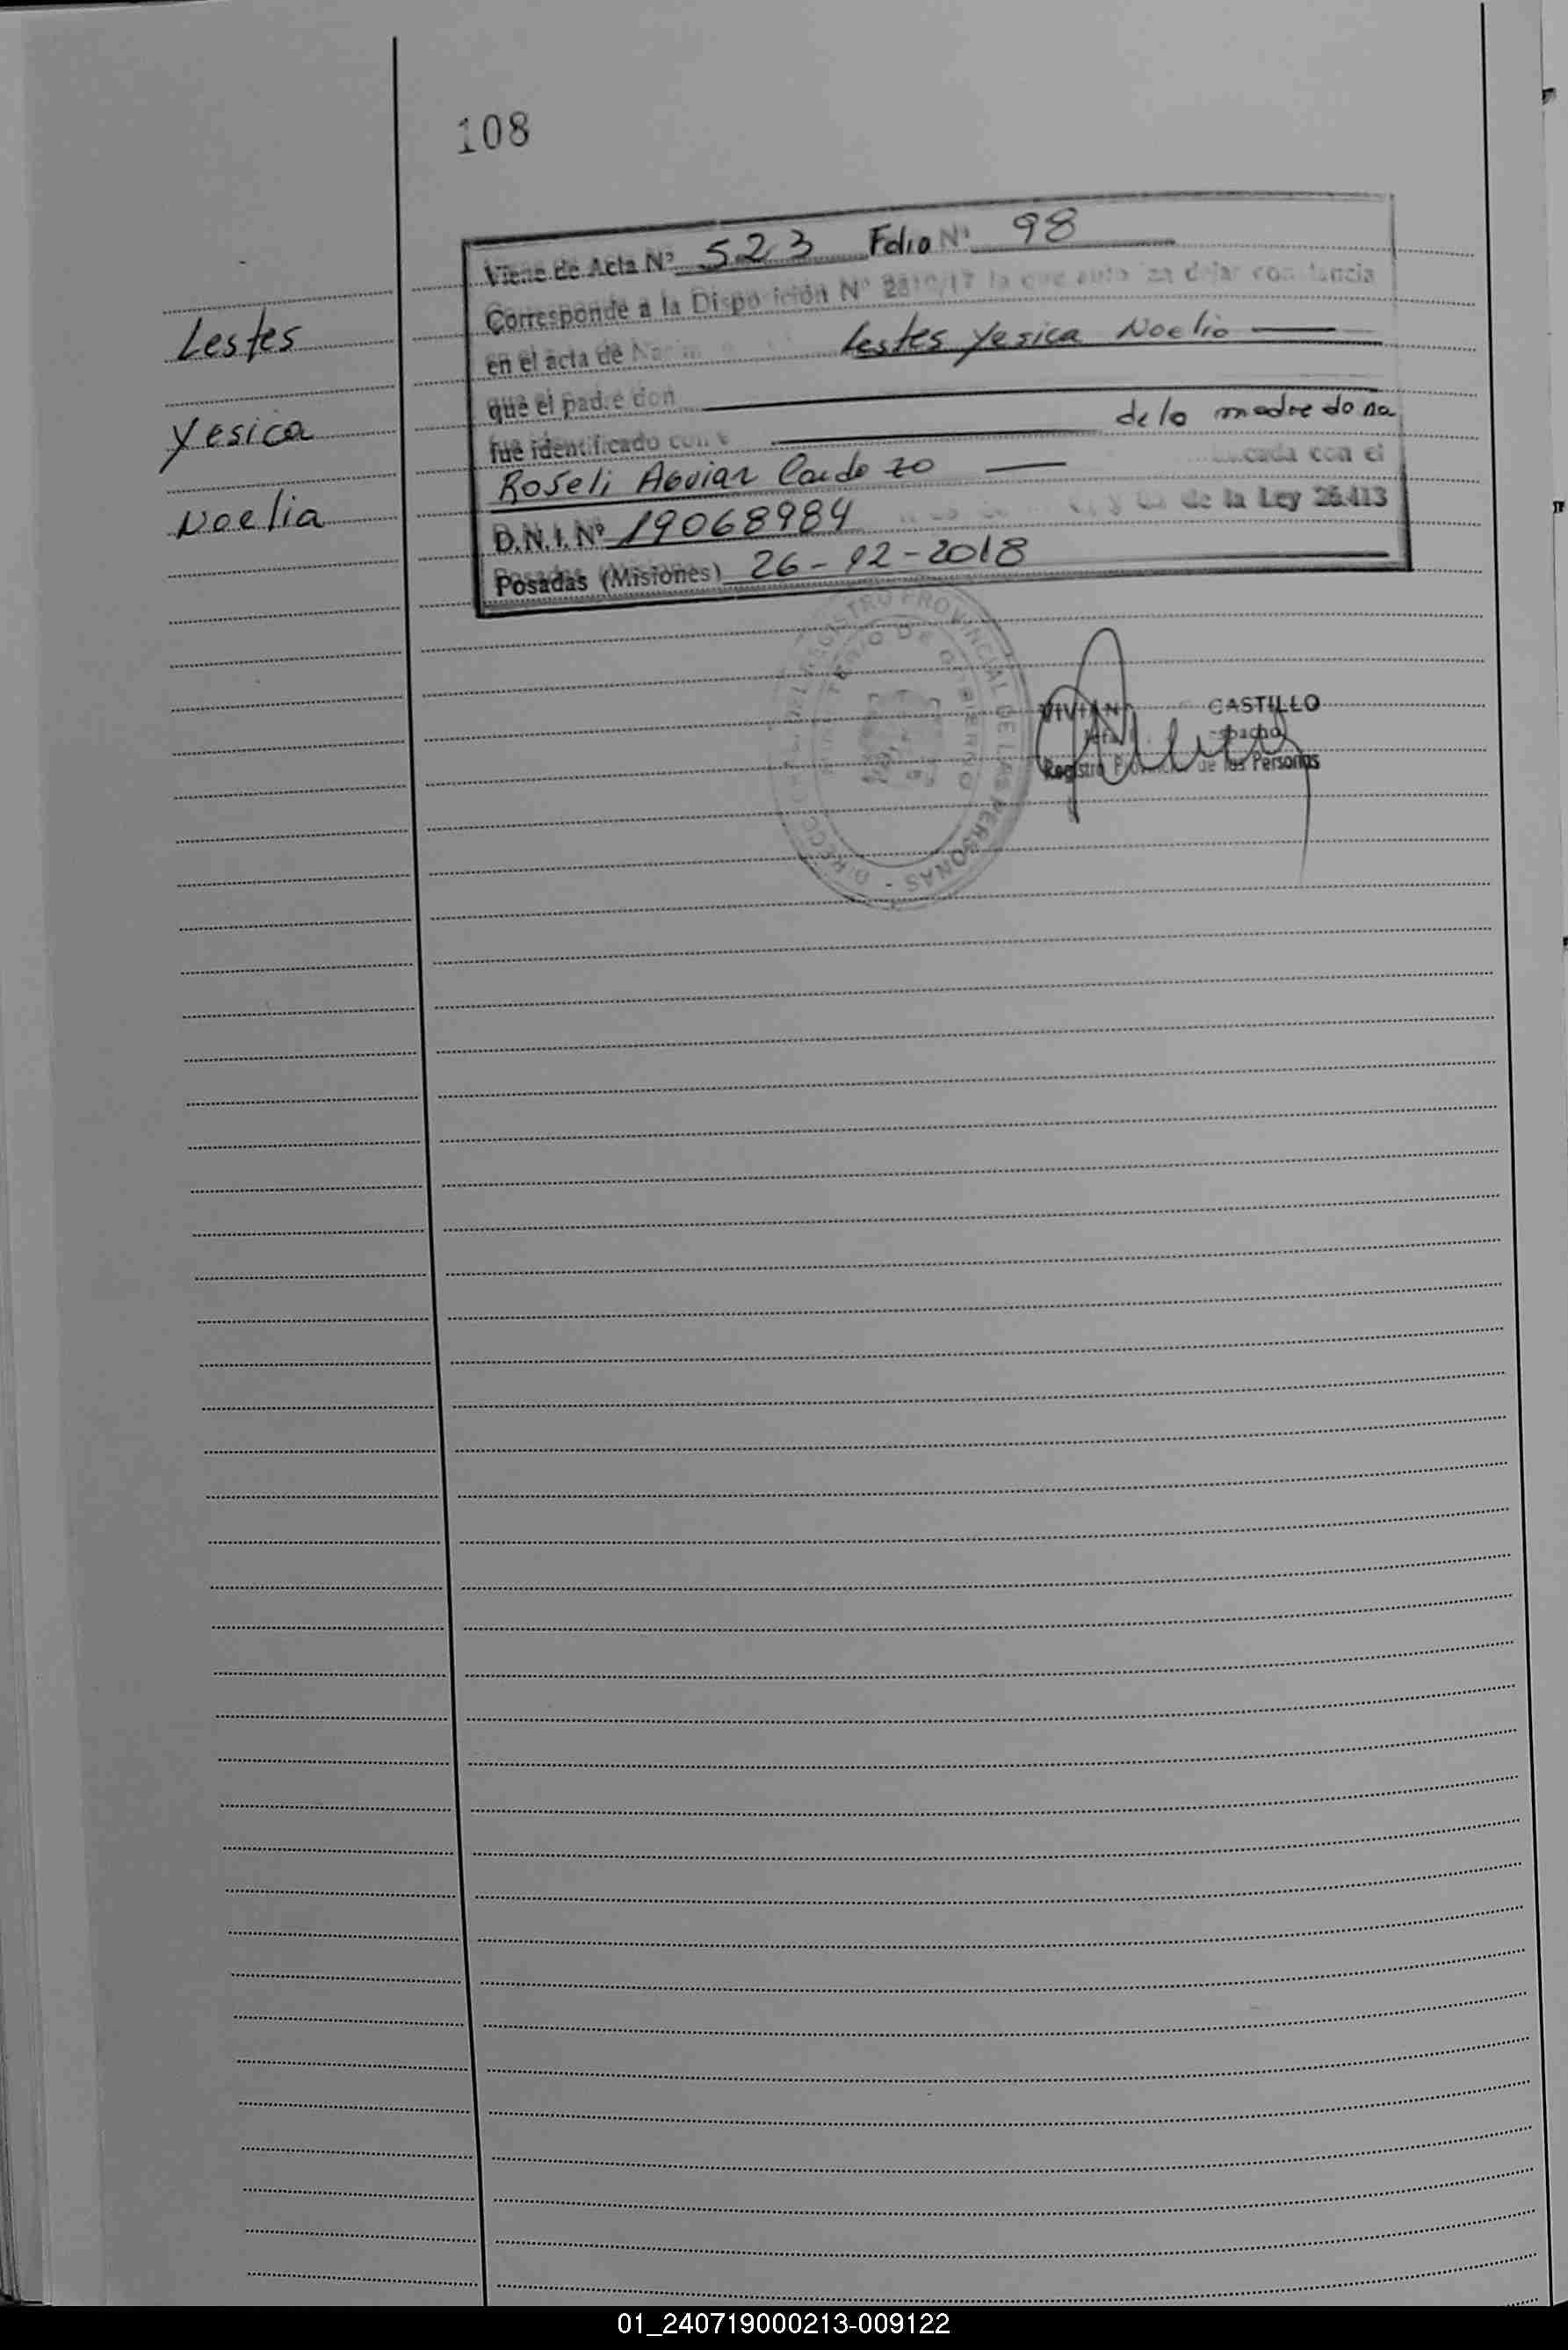 108
Lestes
Yesica
Noelia
Viene de Acta Nº 523 Folio Nº 98
Corresponde a la Disposición Nº 2810/17 la que autoriza dejar constancia
en el acta de Lestes Yesica Noelia
que el padre don
fue identificado con de la madre dona
Roseli Aguiar Cardozo con el
D.N.I. Nº 19068984 de la Ley 26.413
Posadas (Misiones) 26-12-2018
DIRECCION DEL REGISTRO PROVINCIAL DE LAS PERSONAS -
DE GOBIERNO
VIVIAN CASTILLO
Registro de las Personas
01_240719000213-009122